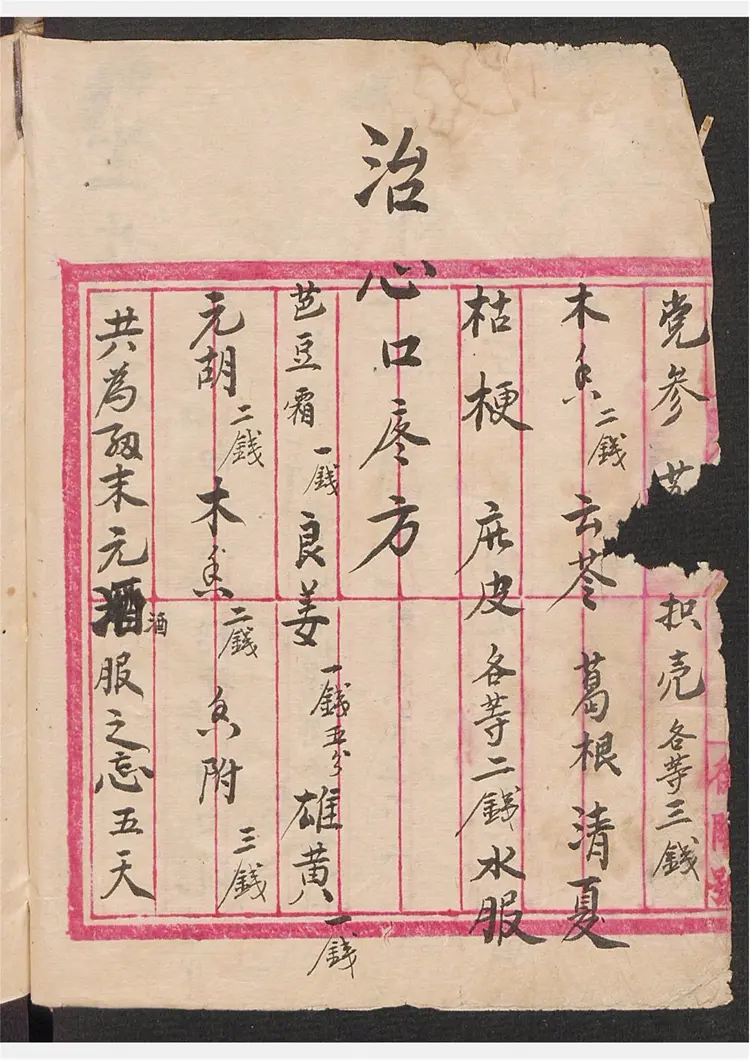 党参 枳壳各等三錢
木香二錢 云苓 葛根 清夏
枯梗 庇皮 各等二錢水服
治心口疼方
芭豆霜一錢 良姜一錢五分 雄黄一錢
元胡二錢 木香二錢 香附三錢
共為細末元酒酒服之忘五天